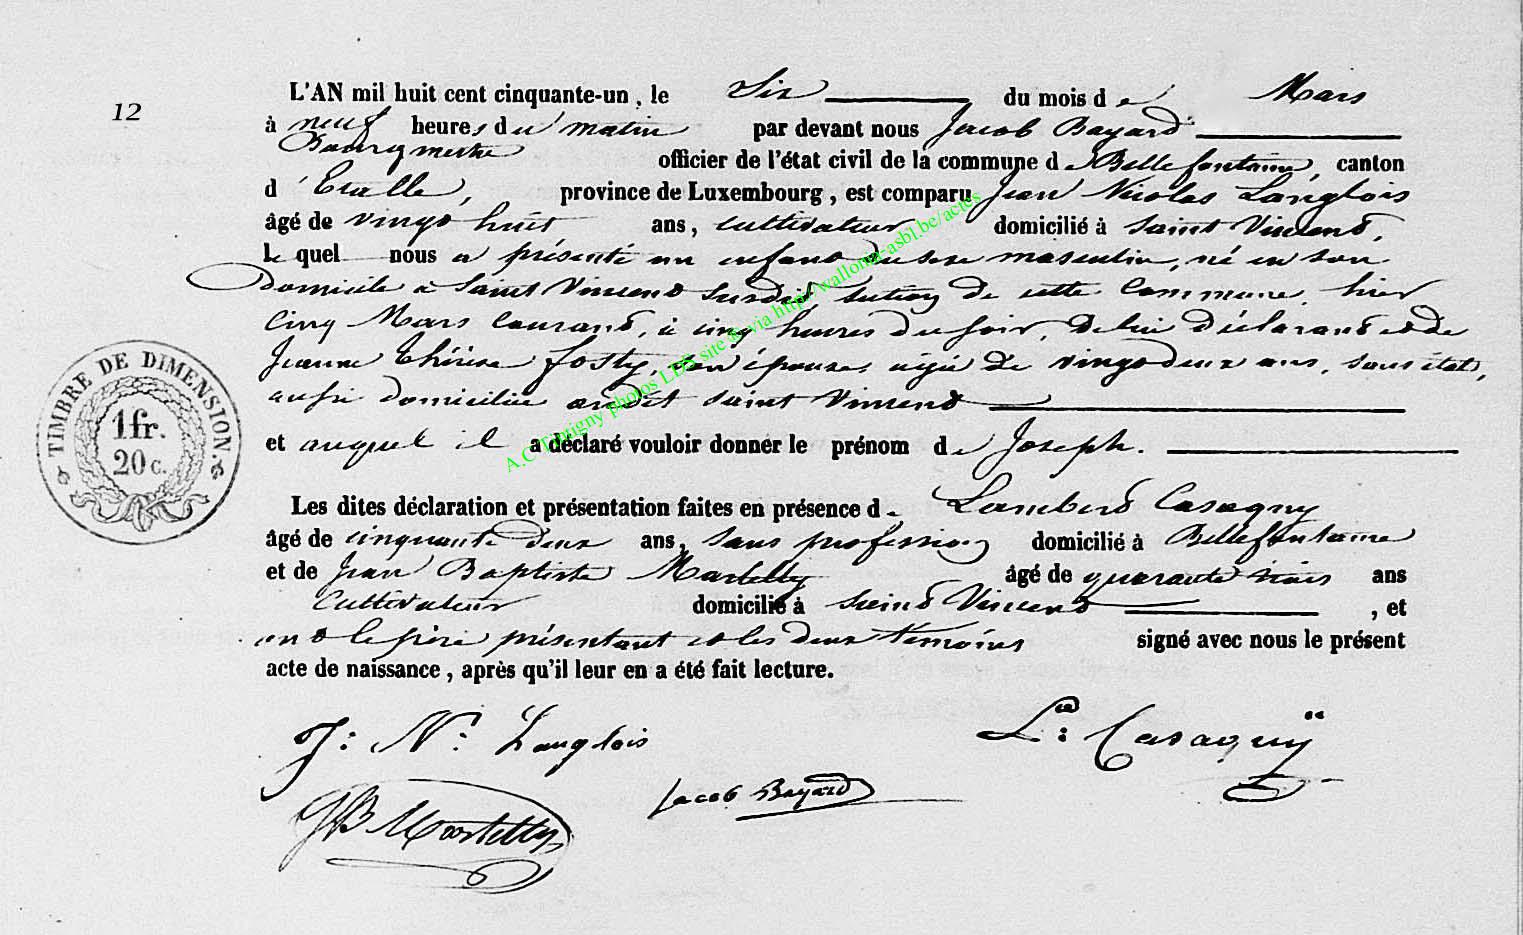 12
L'AN mil huit cent cinquante-un, le Six du mois de Mars
à neuf heures du matin par devant nous Jacob Bayard
Bourgmestre officier de l'état civil de la commune de Bellefontaine, canton
d'Etalle, province de Luxembourg, est comparu Jean Nicolas Langlois
âgé de vingt huit ans, cultivateur domicilié à Saint Vincent,
le quel nous a présenté un enfant du sexe masculin, né en son
domicile à Saint Vincent susdit, section de cette Commune, hier
cinq Mars courant, à cinq heures du soir, de lui déclarant et de
Jeanne Thérèse fosty, son épouse, agée de vingt deux ans, sans état,
aussi domiciliée audit saint Vincent
et auquel il a déclaré vouloir donner le prénom de Joseph.
Les dites déclaration et présentation faites en présence de Lambert Casagny
âgé de cinquante deux ans, sans profession domicilié à Bellefontaine
et de Jean Baptiste Martelly âgé de quarante trois ans
Cultivateur domicilié à Saint Vincent, et
ont le père présentant et les deux témoins signé avec nous le présent
acte de naissance, après qu'il leur en a été fait lecture.
J: N: Langlois
Lt: Casagny
Jacob Bayard
JB Martelly
TIMBRE DE DIMENSION.
1 fr.
20 c.
A.C Tintigny photos LDS site de via http://wallonia-asbl.be/actes